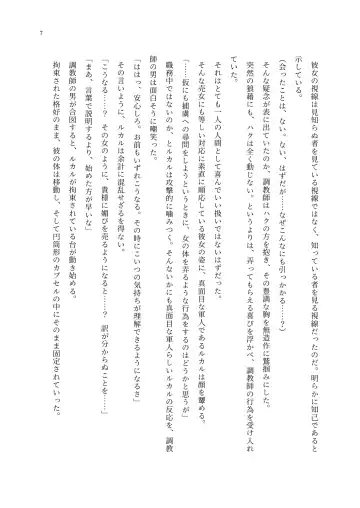 彼女の視線は見知らぬ者を見ている視線ではなく、知っている者を見る視線だったのだ。明らかに知己であると
示している。
（会ったことは、ない。ない、はずだが……なぜこんなにも引っかかる……？）
そんな疑念が表に出ていたのか、調教師は、ハクの方を抱き、その豊満な胸を無造作に鷲掴みにした。
突然の狼藉にも、ハクは全く動じない。というよりは、弄ってもらえる喜びを浮かべ、調教師の行為を受け入れ
ていた。
それはとても一人の人間として喜んでいい扱いではないはずだった。
そんな売女にも等しい対応に素直に順応している彼女の姿に、真面目な軍人であるルカルは顔を顰める。
「……仮にも捕虜への尋問をしようというときに、女の体を弄るような行為をするのはどうかと思うが」
職務中ではないのか、とルカルは攻撃的に噛みつく。そんないかにも真面目な軍人らしいルカルの反応を、調教
師の男は面白そうに嘲笑った。
「ははっ。安心しろ、お前もいずれこうなる。その時にこいつの気持ちが理解できるようになるさ」
その言いように、ルカルは余計に混乱せざるを得ない。
「こうなる……？　その女のように、貴様に媚を売るようになると……？　訳が分からぬことを……」
「まあ、言葉で説明するより、始めた方が早いな」
調教師の男が合図すると、ルカルが拘束されている台が動き始める。
拘束された格好のまま、彼の体は移動し、そして円筒形のカプセルの中にそのまま固定されていった。
7